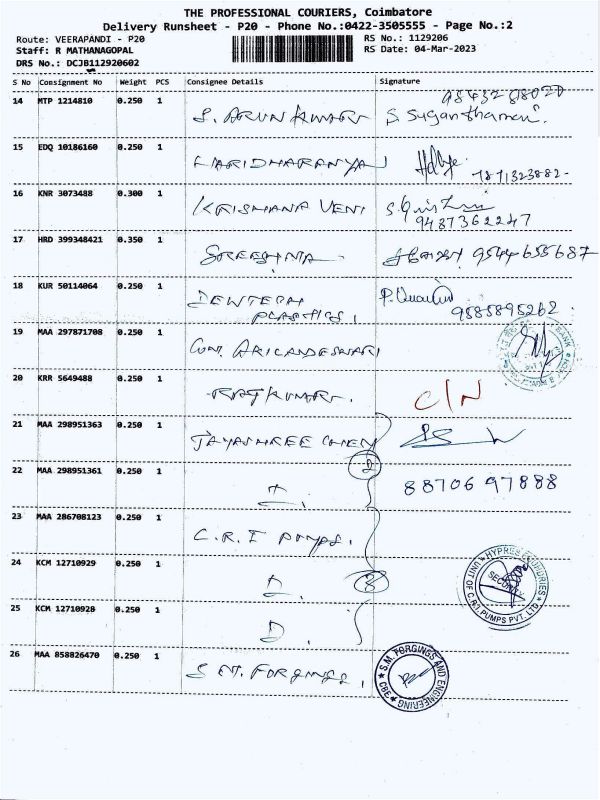 THE PROFESSIONAL COURIERS, Coimbatore
Delivery Runsheet - P20 - Phone No.:0422-3505555 - Page No.:2
Route: VEERAPANDI - P20
RS No.: 1129206
Staff: R MATHANAGOPAL
RS Date: 04-Mar-2023
DRS No.: DCJB112920602
S No Consignment No Weight PCS Consignee Details Signature
14 MTP 1214810 0.250 1 S. ARUN KUMAR S. Suganthamani
15 EDQ 10186160 0.250 1 HARIDHARANYA 7871323882
16 KNR 3073488 0.300 1 KRISHANA VENI
9487362247
17 HRD 399348421 0.350 1 SREESHNA 9544655687
18 KUR 50114064 0.250 1 DEWTECH
PLASTICS, 9585895262
19 MAA 297871708 0.250 1
20 KRR 5649488 0.250 1 RAJKUMAR. C/N
21 MAA 298951363 0.250 1 JAYASHREE CHEM
22 MAA 298951361 0.250 1 8870697888
23 MAA 286708123 0.250 1 C.R.I PUMPS.
24 KCM 12710929 0.250 1
HYPRES FOUNDRIES
SECURITY
UNIT OF C.R.I. PUMPS PVT. LTD
25 KCM 12710928 0.250 1 D.
26 MAA 858826470 0.250 1 S M. FORGINGS,
S.M. FORGINGS AND ENGINEERING
CBE